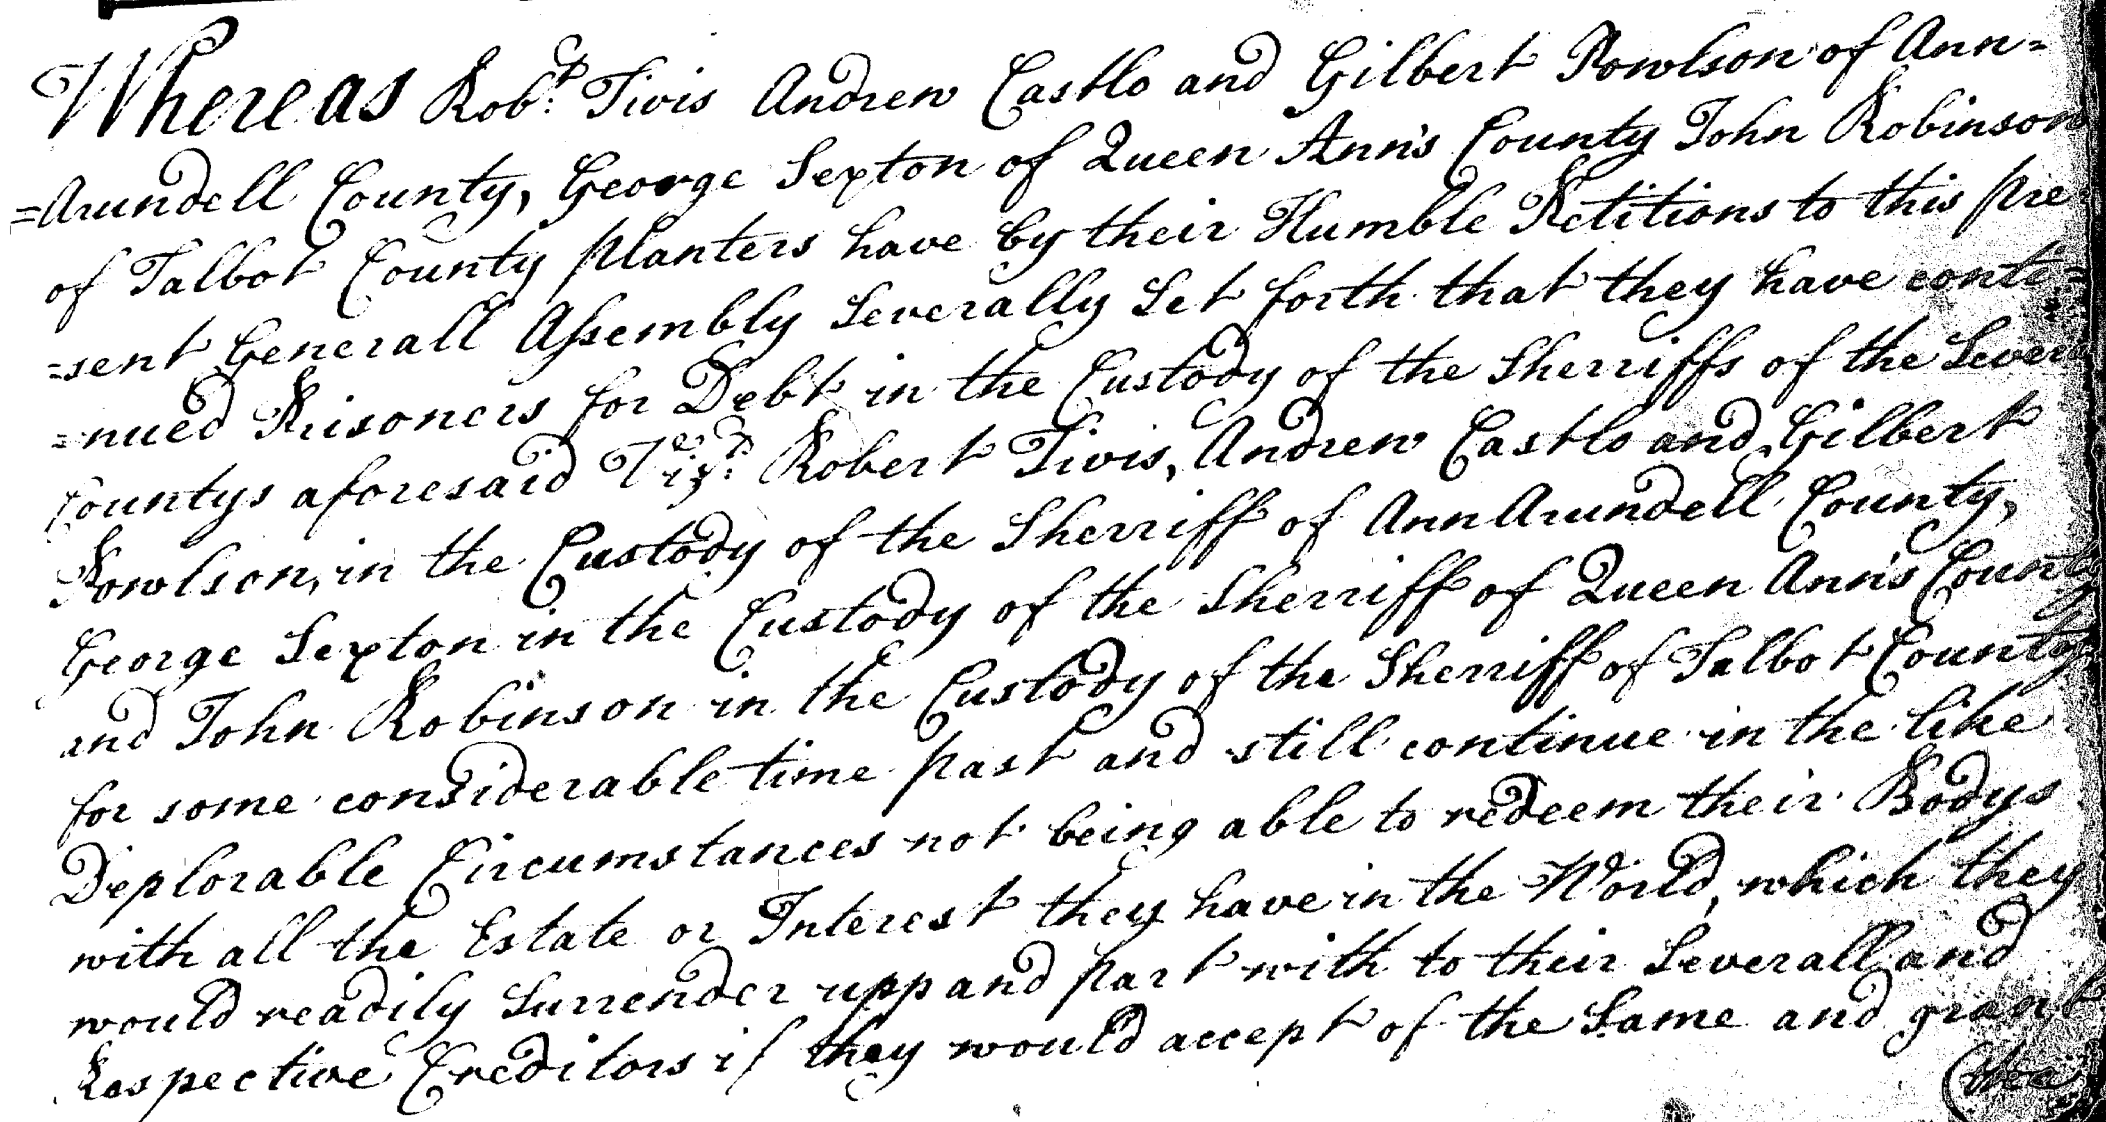 Whereas Robt. Tivis Andrew Castlo and Gilbert Powlson of Ann=
=Arundell County, George Sexton of Queen Ann's County John Robinson
of Talbot County planters have by their Humble Petitions to this pre
=sent Generall Assembly Severally Set forth that they have conti=
=nued Prisoners for Debt in the Custody of the Sherriffs of the Severall
Countys aforesaid Vizt. Robert Tivis, Andrew Castlo and Gilbert
Powlson, in the Custody of the Sherriff of Ann Arundell County,
George Sexton in the Custody of the Sherriff of Queen Ann's County
and John Robinson in the Custody of the Sherriff of Talbot County
for some considerable time past and still continue in the like
Deplorable Circumstances not being able to redeem their Bodys
with all the Estate or Interest they have in the World, which they
would readily Surrender upp and part with to their Severall and
Respective Creditors if they would accept of the Same and grant